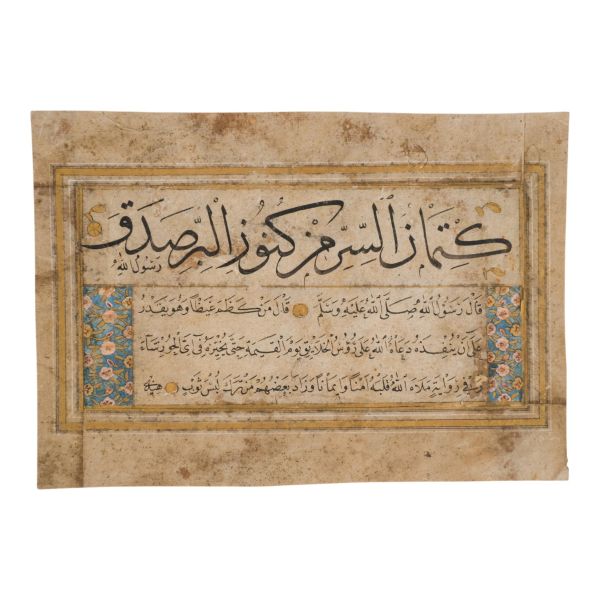 كتمان السر من كنوز البر صدق
رسول الله
قال رسول الله صلى الله عليه وسلم قال من كظم غيظا وهو يقدر
على أن ينفذه دعاه الله على رؤس الخلائق يوم القيمة حتى يخيره فى أي الحور شاء
وفي رواية ملأه الله قلبه امنا وايمانا وزاد بعضهم من ترك لبس ثوب